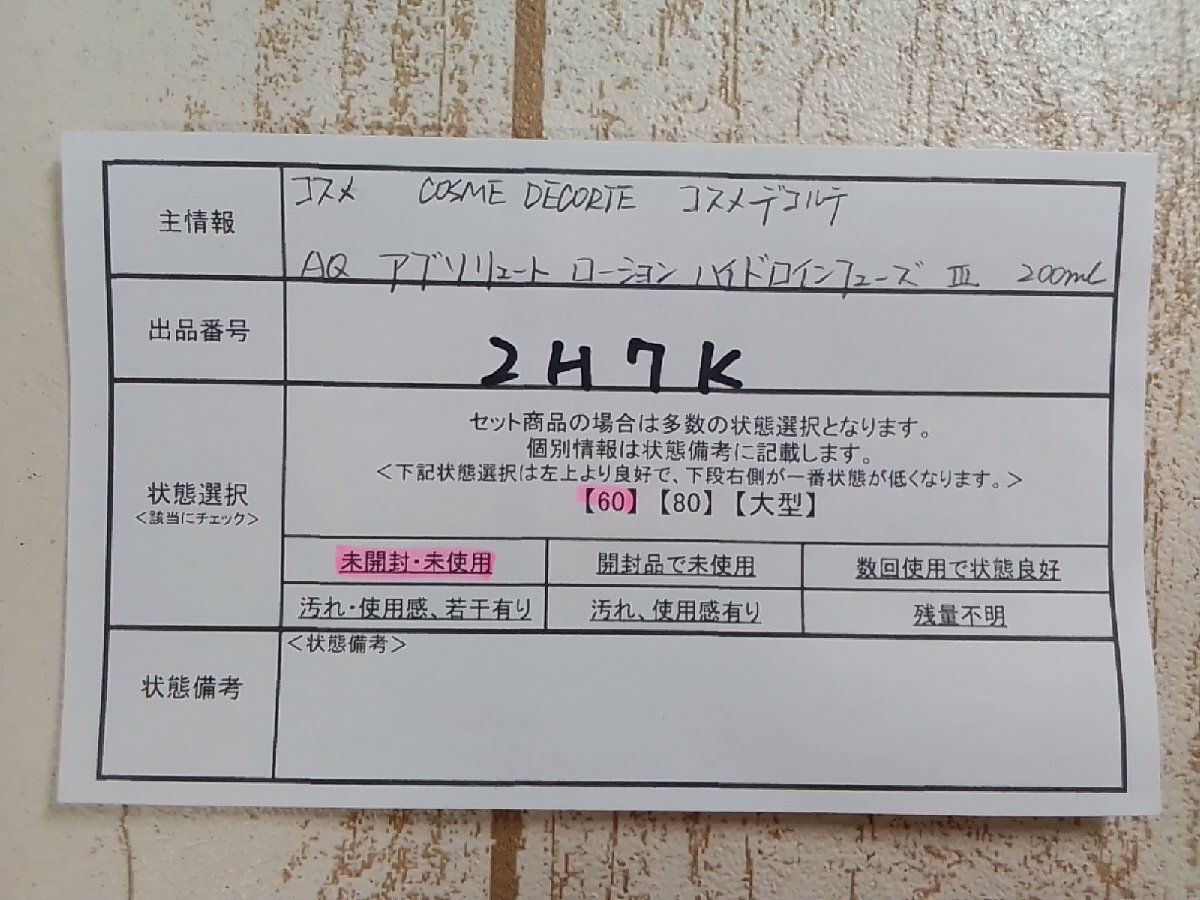 主情報
コスメ COSME DECORTE コスメデコルテ
AQ アブソリュート ローション ハイドロインフューズ Ⅲ 200ml
出品番号
2H7K
状態選択
<該当にチェック>
セット商品の場合は多数の状態選択となります。
個別情報は状態備考に記載します。
<下記状態選択は左上より良好で、下段右側が一番状態が低くなります。>
【60】【80】【大型】
未開封・未使用 開封品で未使用 数回使用で状態良好
汚れ・使用感、若干有り 汚れ、使用感有り 残量不明
状態備考
<状態備考>